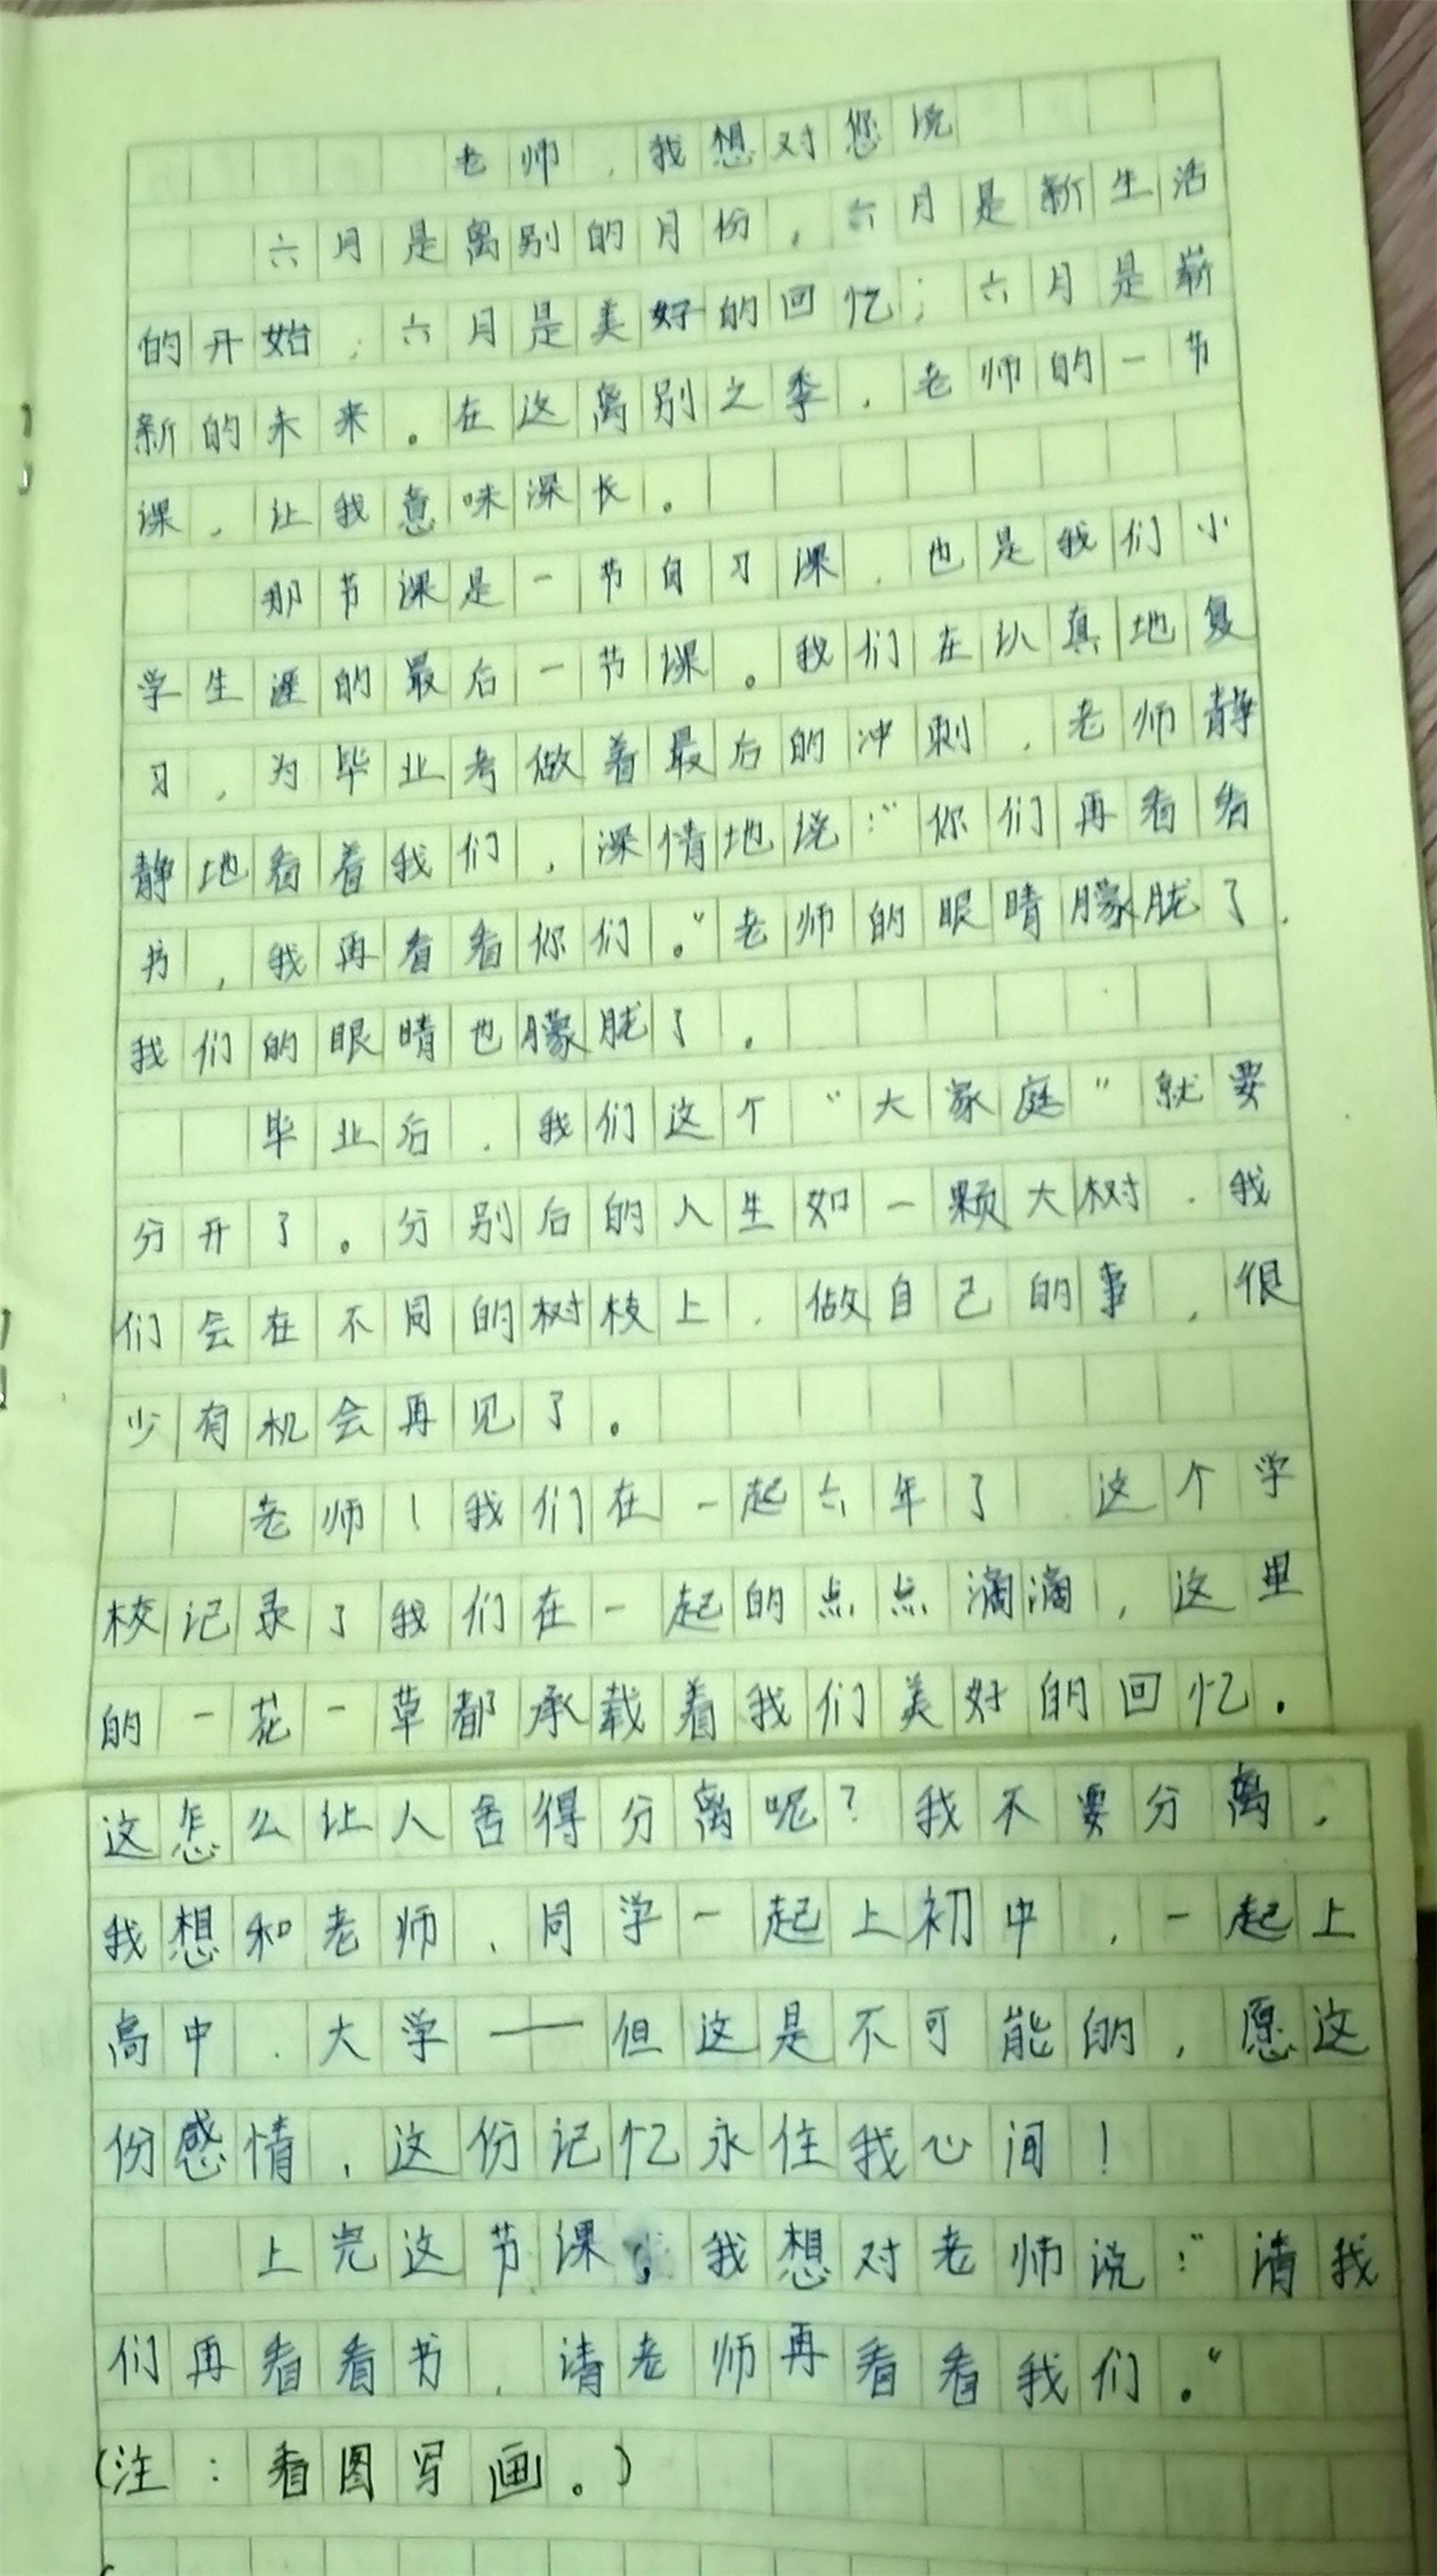 老师,我想对您说
六月是离别的月份,六月是新生活
的开始;六月是美好的回忆;六月是崭
新的未来。在这离别之季,老师的一节
课,让我意味深长。
那节课是一节自习课,也是我们小
学生涯的最后一节课。我们在认真地复
习,为毕业考做着最后的冲刺,老师静
静地看着我们,深情地说:“你们再看看
书,我再看看你们。”老师的眼睛朦胧了,
我们的眼晴也朦胧了。
毕业后,我们这个“大家庭”就要
分开了。分别后的人生如一颗大树,我
们会在不同的树枝上,做自己的事,很
少有机会再见了。
老师!我们在一起六年了,这个学
校记录了我们在一起的点点滴滴,这里
的一花一草都承载着我们美好的回忆。
这怎么让人舍得分离呢?我不要分离,
我想和老师、同学一起上初中,一起上
高中、大学——但这是不可能的,愿这
份感情,这份记忆永住我心间!
上完这节课,我想对老师说:“请我
们再看看书,请老师再看看我们。”
(注:看图写画。)